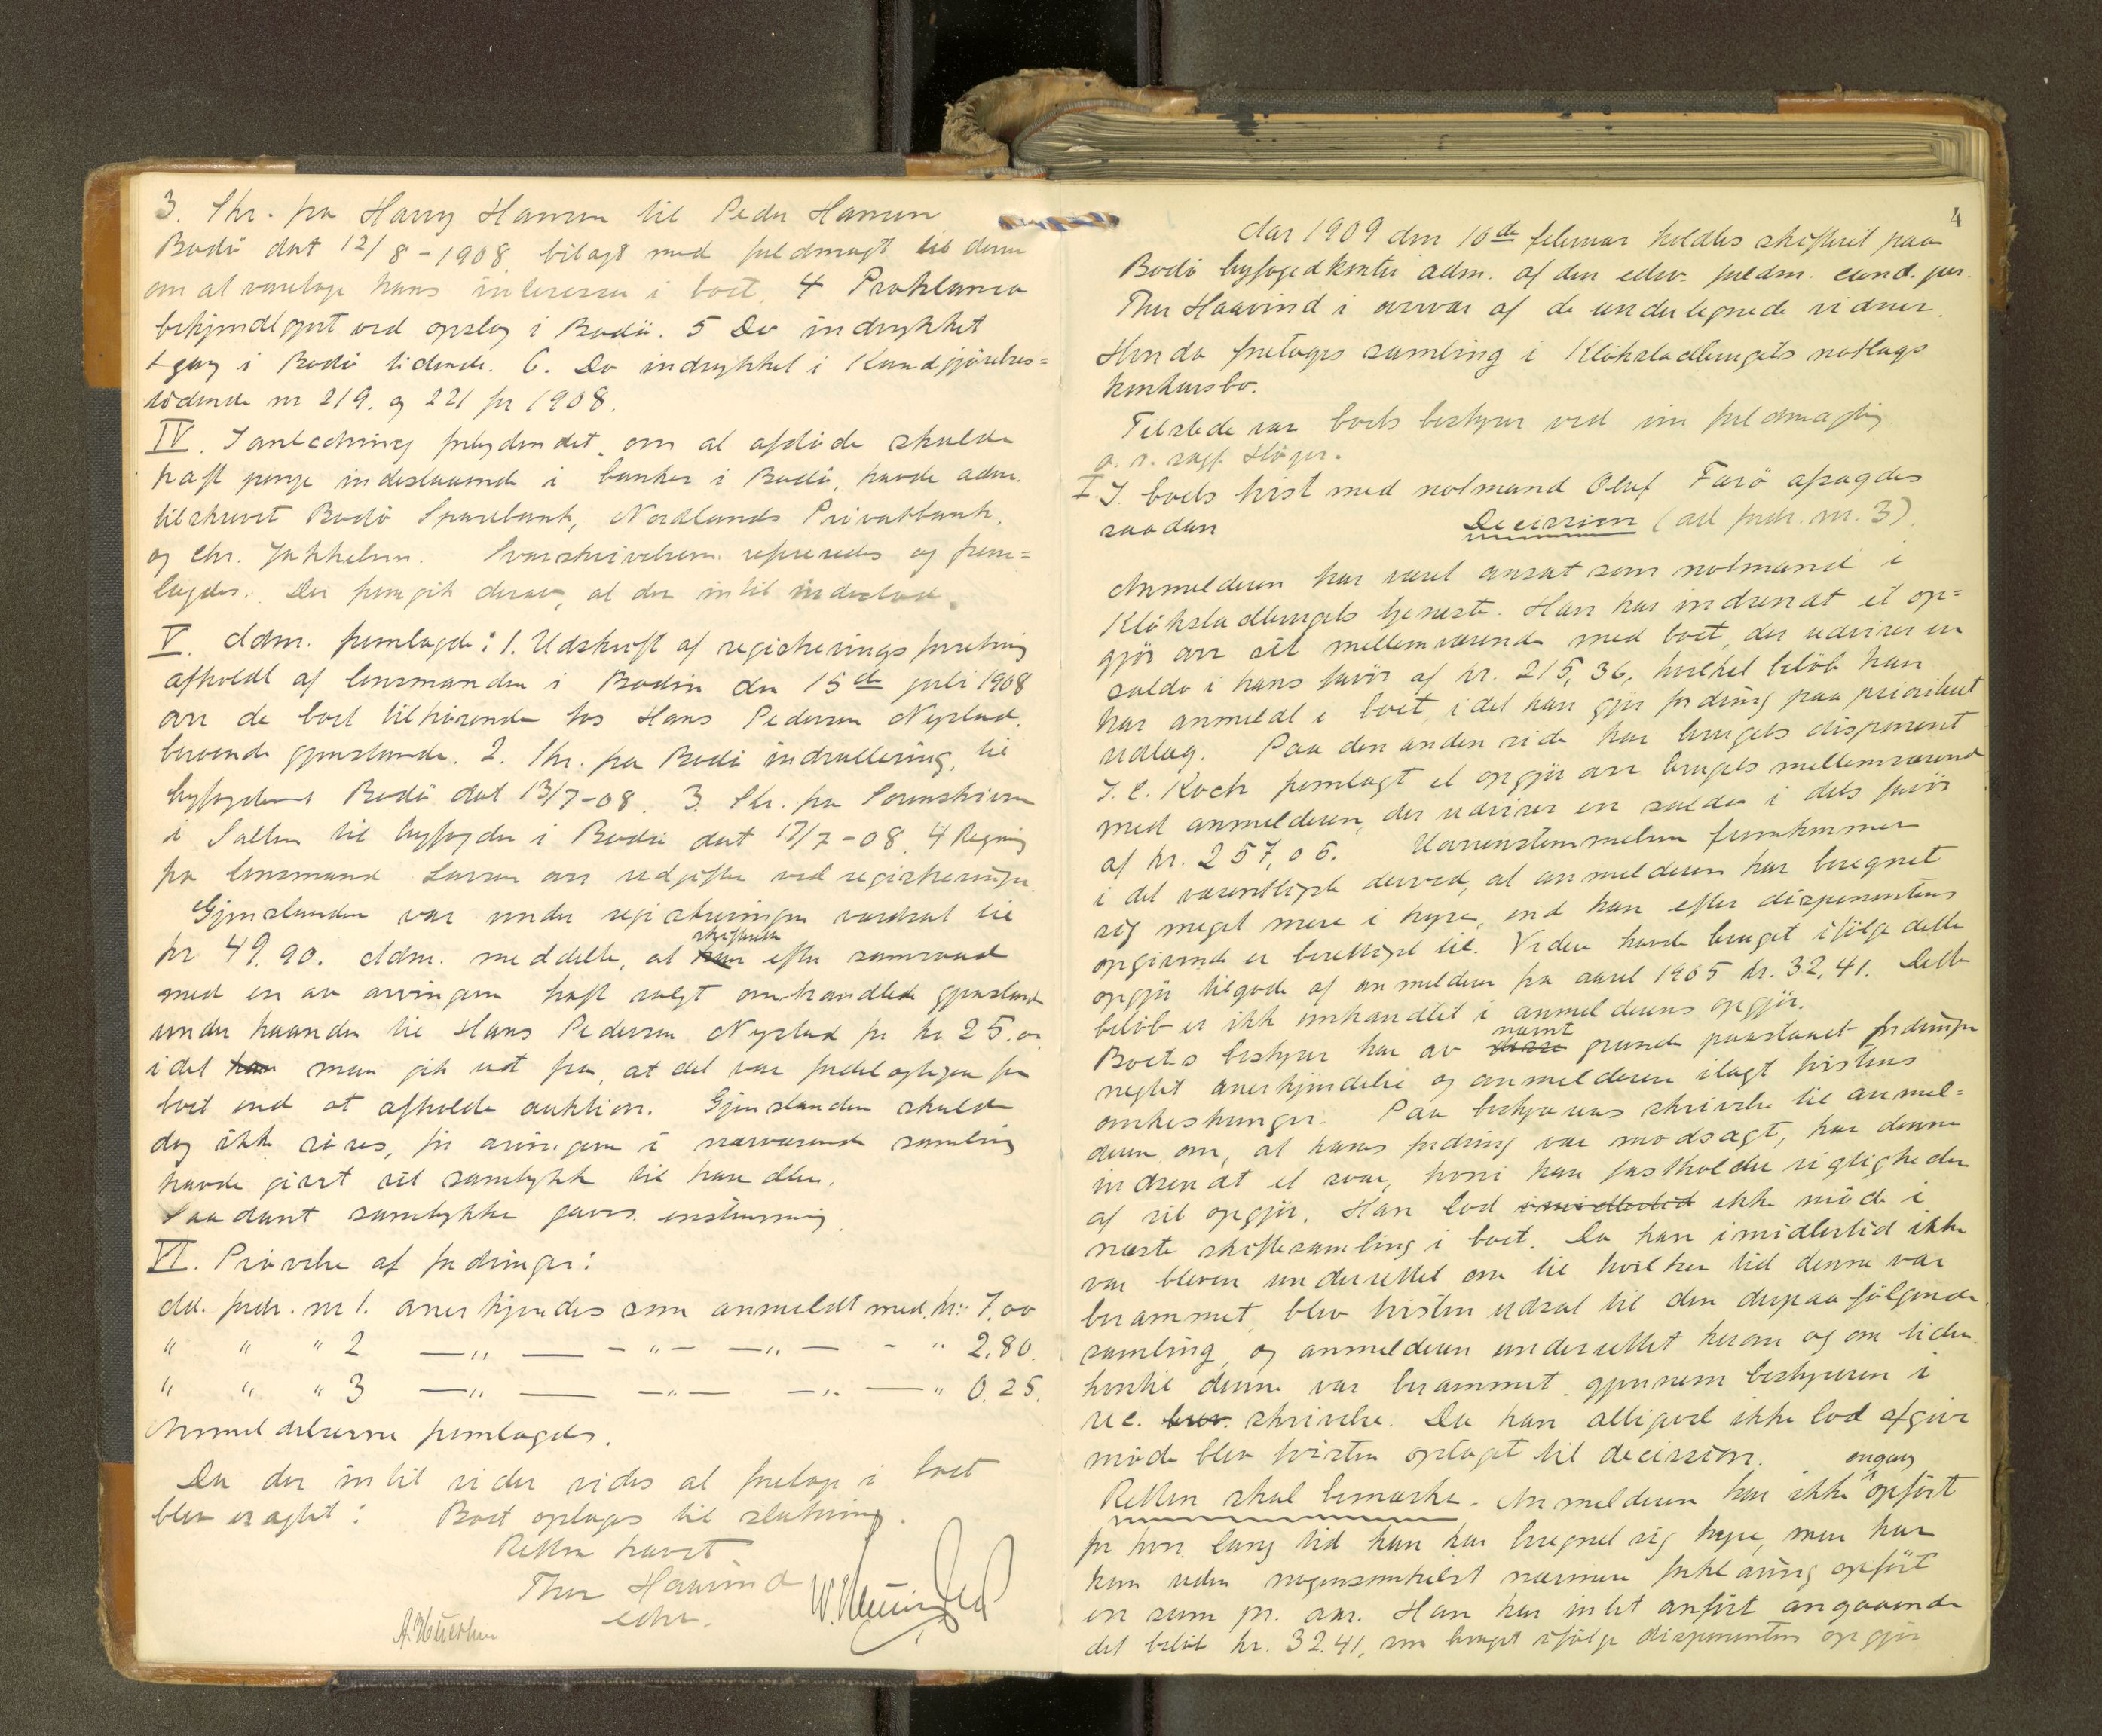 3. Skr. fra Harry Hansen til Peder Hansen
Bodö dat 12/8-1908 bilagt med fuldmagt til denne
om at varetage hans interesser i boet. 4 Proklama
bekjendtgjort ved opslag i Bodö. 5 Do indrykket
1 gang i Bodö tidende. 6. Do indrykket i Kundgjörelses=
tidende nr 219. og 221 for 1908.
IV. I anledning forlydendet om at afdöde skulde
haft penge indestaaende i banker i Bodö, havde adm.
tilskrevet Bodö Sparebank, Nordlands Privatbank,
og Chr. Jakhelln. Svarskrivelserne refereredes og frem=
lagdes. Der fremgik derav, at der intet indestod.
V. Adm. fremlagde: 1. Udskrift af registreringsforretning
afholdt af lensmanden i Bodin den 15de juli 1908
over de boet tilhörende hos Hans Pedersen Nystad
beroende gjenstande. 2. Skr. fra Bodö indrullering til
byfogden i Bodö dat 13/7-08. 3. Skr. fra Sorenskriveren
i Salten til byfogden i Bodö dat 17/7-08. 4 Regning
fra lensmand Larsen over udgifter ved registreringen.
Gjenstanden var under registreringen værdsat til
kr 49.90. Adm. meddelte, at han skifteretten efter samraad
med en av arvingerne haft solgt omhandlede gjenstande
under haanden til Hans Pedersen Nystad for kr 25.00
idet han man gik ut fra, at det var fordelagtigere for
boet end at afholde auktion. Gjenstanden skulde
dog ikke röres, för arvingerne i nærværende samling
havde givet sit samtykke til handelen.
Saadant samtykke gaves enstemmig.
VI. Prövelse af fordringer:
Ad. fordr. nr 1. anerkjendes som anmeldt med kr: 7,00
" " " 2 —"— - "- —"— - " 2.80.
" " " 3 —"— —"— —"— " 0.25.
Anmeldelserne fremlagdes.
Da der intet videre vides at foretage i boet
blev eragtet: Boet optages til slutning.
Retten hævet.
Thor Haavind
edsv.
4
Aar 1909 den 10de februar holdtes skifteret paa
Bodö byfogedkontor adm. af den edsv. fuldm. cand. jur.
Thor Haavind i overvær af de undertegnede vidner.
Hvorda foretoges samling i Klökstadbrugets notlags
konkursbo.
Tilstede var boets bestyrer ved sin fuldmægtig
o. r. sagf. Höyer.
I I. boets tvist med notmand Oluf Farö afsagdes
saadan Decission (ad fordr. nr. 3)
Anmelderen har været ansat som notmand i
Klökstadbrugets tjeneste. Han har indsendt et op=
gjör over sit mellemværende med boet, der udviser en
saldo i hans favör af kr. 215,36, hvilket belöb han
har anmeldt i boet, idet han gjör fordring paa prioritert
udlæg. Paa den anden side har brugets disponent
J. C. Koch fremlagt et opgjör over brugets mellemværende
med anmelderen, der udviser en saldo i dets favör
af kr. 257,05. Uoverenstemmelsen fremkommer
i det væsentligste derved, at anmelderen har beregnet
sig meget mere i hyre, end han efter disponentens
opgivende er berettiget til. Videre havde bruget ifölge dette
opgjör tilgode af anmelderen fra aaret 1905 kr. 32,41. Dette
belöb er ikke omhandlet i anmelderens opgjör.
Boets bestyrer har av disse nævnt grunde paastaaet fordringen
negtet anerkjendelse og anmelderen ilagt tvistens
omkostninger. Paa bestyrerens skrivelse til anmel=
deren om, at hans fordring var modsagt, har denne
indsendt et svar, hvori han fastholder rigtigheden
af sit opgjör. Han lod imidlertid ikke möde i
næste skiftesamling i boet. Da han imidlertid ikke
var bleven underrettet om til hvilken tid denne var
berammet, blev tvisten udsat til den derpaa fölgende
samling, og anmelderen underrettet herom og om tiden
hvortil denne var berammet gjennem bestyreren i
rec. brev. skrivelse. Da han alligevel ikke lod afgive
möde blev tvisten optaget til decission.
Retten skal bemærke. Anmelderen har ikke engang opfört
for hvor lang tid han har beregnet sig hyre, men har
kun uden nogensomhelst nærmere forklaring opfört
en sum pr. aar. Han har intet anfört angaaende
det belöb kr. 32.41, som bruget ifölge disponentens opgjör